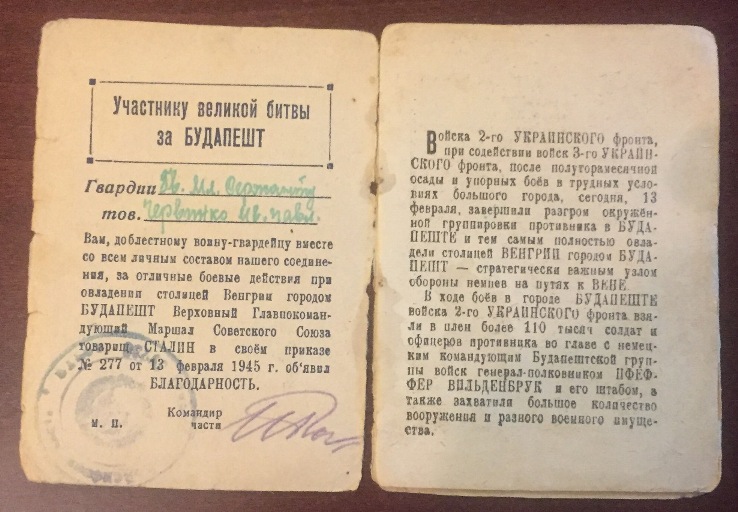 Участнику великой битвы
за БУДАПЕШТ
Гвардии Мл. Сержанту
тов. Ив. Павл.
Вам, доблестному воину-гвардейцу вместе
со всем личным составом нашего соедине-
ния, за отличные боевые действия при
овладения столицей Венгрии городом
БУДАПЕШТ Верховный Главнокоман-
дующий Маршал Советского Союза
товарищ СТАЛИН в своём приказе
№ 277 от 13 февраля 1945 г. об'явил
БЛАГОДАРНОСТЬ.
Командир
части
М. П.
Войска 2-го УКРАИНСКОГО фронта,
при содействии войск 3-го УКРАИН-
СКОГО фронта, после полуторамесячной
осады и упорных боёв в трудных усло-
виях большого города, сегодня, 13
февраля, завершили разгром окружён-
ной группировки противника в БУДА-
ПЕШТЕ и тем самым полностью овла-
дели столицей ВЕНГРИИ городом БУДА-
ПЕШТ — стратегически важным узлом
обороны немцев на путях к ВЕНЕ.
В ходе боёв в городе БУДАПЕШТЕ
войска 2-го УКРАИНСКОГО фронта взя-
ли в плен более 110 тысяч солдат и
офицеров противника во главе с немец-
ким командующим Будапештской груп-
пы войск генерал-полковником ПФЕФ-
ФЕР ВИЛЬДЕНБРУК и его штабом, а
также захватили большое количество
вооружения и разного военного имуще-
ства.